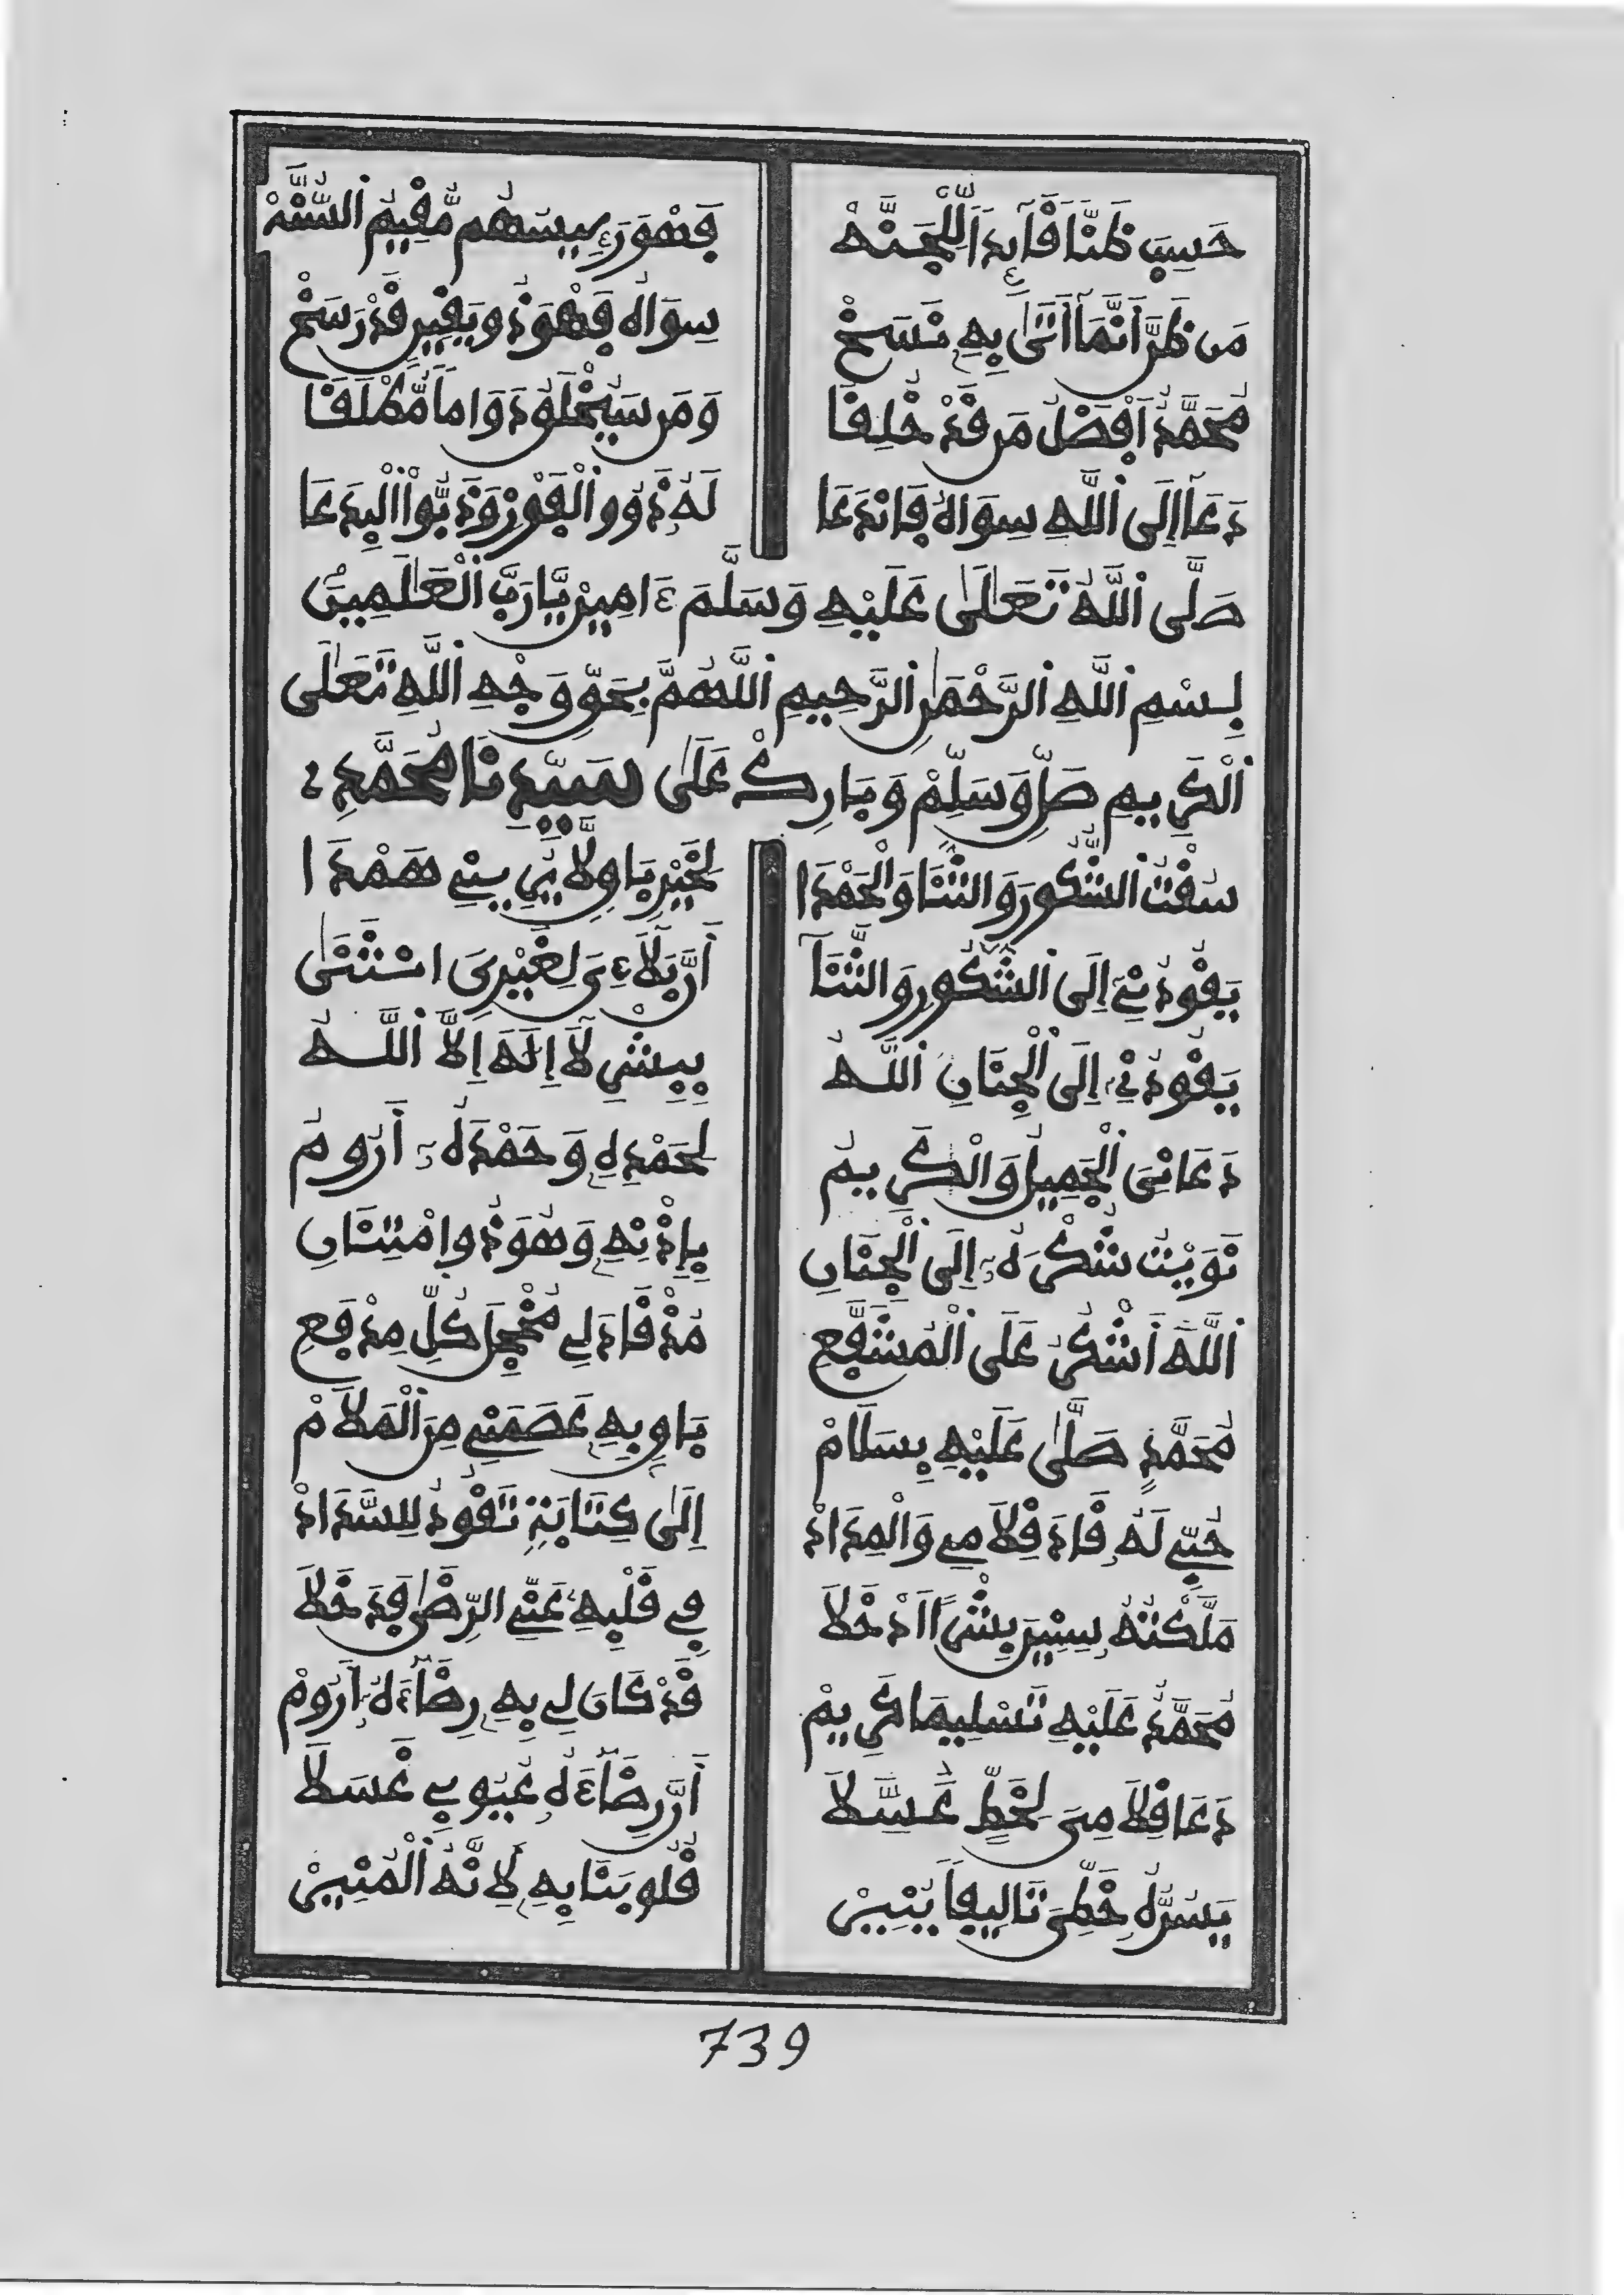 حَسِبَ ظَنَّا قَآئِدَ اَللْجَنَّهْ فَهُوَ رَءِيسُهُم مُّقِيمُ السُّنَّهْ
مَن ظَنَّ أَنَّمَا أَتَىٰ بِهِ نَسَخْ سِوَاهُ فَهْوَ ذُو يَقِينٍ قَدْ رَسَخْ
مُحَمَّدٌ أَفْضَلُ مَن قَدْ خُلِقَا وَمَن سَيُخْلَقُ دَوَامًا مُّطْلَقَا
دَعَا إِلَى اللَّهِ سِوَاهُ فَانْدَعَا لَهُ ذَوُو الْفَوْزِ وَذَبُّوا الْبِدَعَا
صَلَّى اللَّهُ تَعَالَىٰ عَلَيْهِ وَسَلَّمَ ءَامِينْ يَّا رَبَّ الْعَٰلَمِينَ
بِسْمِ اللَّهِ الرَّحْمَٰنِ الرَّحِيمِ اللَّهُمَّ بِحَقِّ وَجْهِ اللَّهِ تَعَٰلَى
الْكَرِيمِ صَلِّ وَسَلِّمْ وَبَارِكْ عَلَىٰ سَيِّدِنَا مُحَمَّدٍ
سُقْتُ الشُّكُورَ وَالثَّنَا وَالْحَمْدَا لِخَيْرِ بَاقٍ لَّا يَنِي بِي هَمْدَا
يَقُودُنِي إِلَى الشُّكُورِ وَالثَّنَآ أَنَّ بَلَآءِيَ لِغَيْرِيَ اسْتَثْنَىٰ
يَقُودُنِي إِلَى الْجِنَانِ اللَّهُ بِبِشْرِ لَآ إِلَٰهَ إِلَّا اللَّهُ
دَعَانِيَ الْجَمِيلُ وَالْكَرِيمُ لِحَمْدِهِ وَحَمْدَهُ أَرُومُ
نَوَيْتُ شُكْرَهُ إِلَى الْجِنَانِ بِإِذْنِهِ وَهُوَ ذُو امْتِنَانِ
اللَّهَ أَشْكُرُ عَلَى الْمُشَفَّعِ مُذْ قَادَ لِي مُخْجِلَ كُلِّ مِدْفَعِ
مُحَمَّدٍ صَلَّىٰ عَلَيْهِ بِسَلَامْ بَاقٍ بِهِ عَصَمَنِي مِنَ الْمَلَامْ
حُبِّي لَهُ قَادَ قِلَامِي وَالْمِدَادْ إِلَىٰ كِتَابَةٍ تَقُودُ لِلسَّدَادْ
مَلَّكْتُهُ سِنِينَ بِشْرًا اَدْخَلَا فِي قَلْبِهِ عَنِّي الرِّضَىٰ قَدْ خَلَا
مُحَمَّدٌ عَلَيْهِ تَسْلِيمَا كَرِيمْ قَدْ كَانَ لِي بِهِ رِضَآءَهُ أَرُومْ
دَعَا قِلَامِيَ لِخَطٍّ غَسَّلَا أَنَّ رِضَآءَهُ عُيُوبِي غَسَلَا
يَسُرُّهُ خَطِّيَ تَالِيفًا يُنِيرْ قُلُوبَنَا بِهِ لِأَنَّهُ الْمُنِيرْ
739